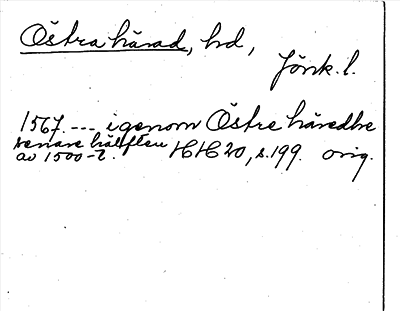 Östra härad, hd,
Jönk. l.
1567. --- igenom Östre häredhe
senare hälften
av 1500-t. HH 20, s. 199. orig.